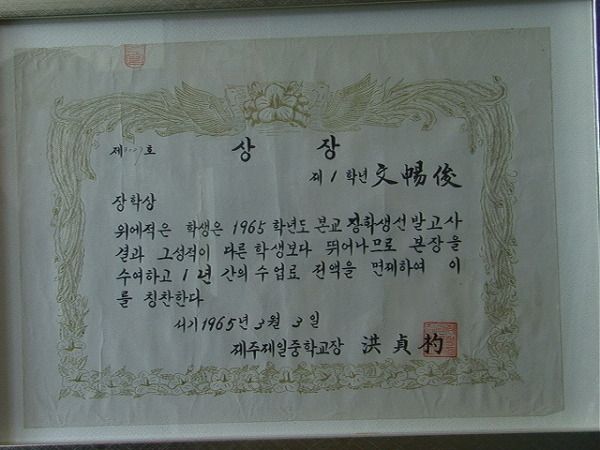 상 장
제 호
제 1 학년 文暢俊
장학상
위에적은 학생은 1965 학년도 본교 장학생선발고사
결과 그성적이 다른학생보다 뛰어나므로 본장을
수여하고 1년 간의 수업료 전액을 면제하여 이
를 칭찬한다
서기 1965년 3월 3일
제주제일중학교장 洪貞杓